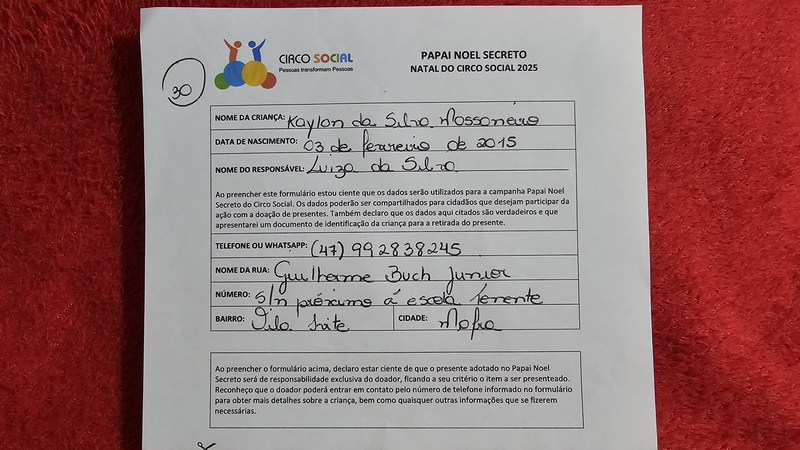 30
CIRCO SOCIAL
Pessoas transformam Pessoas
PAPAI NOEL SECRETO
NATAL DO CIRCO SOCIAL 2025
NOME DA CRIANÇA: Kaylon da Silva Mossoneiro
DATA DE NASCIMENTO: 03 de fevereveio de 2015
NOME DO RESPONSÁVEL: Luiza da Silva
Ao preencher este formulário estou ciente que os dados serão utilizados para a campanha Papai Noel
Secreto do Circo Social. Os dados poderão ser compartilhados para cidadãos que desejam participar da
ação com a doação de presentes. Também declaro que os dados aqui citados são verdadeiros e que
apresentarei um documento de identificação da criança para a retirada do presente.
TELEFONE OU WHATSAPP: (47) 992838245
NOME DA RUA: Guilherme Buch Junior
NÚMERO: S/n próximo á escola tenente
BAIRRO: Vila CIDADE: Mafra
Ao preencher o formulário acima, declaro estar ciente de que o presente adotado no Papai Noel
Secreto será de responsabilidade exclusiva do doador, ficando a seu critério o item a ser presenteado.
Reconheço que o doador poderá entrar em contato pelo número de telefone informado no formulário
para obter mais detalhes sobre a criança, bem como quaisquer outras informações que se fizerem
necessárias.